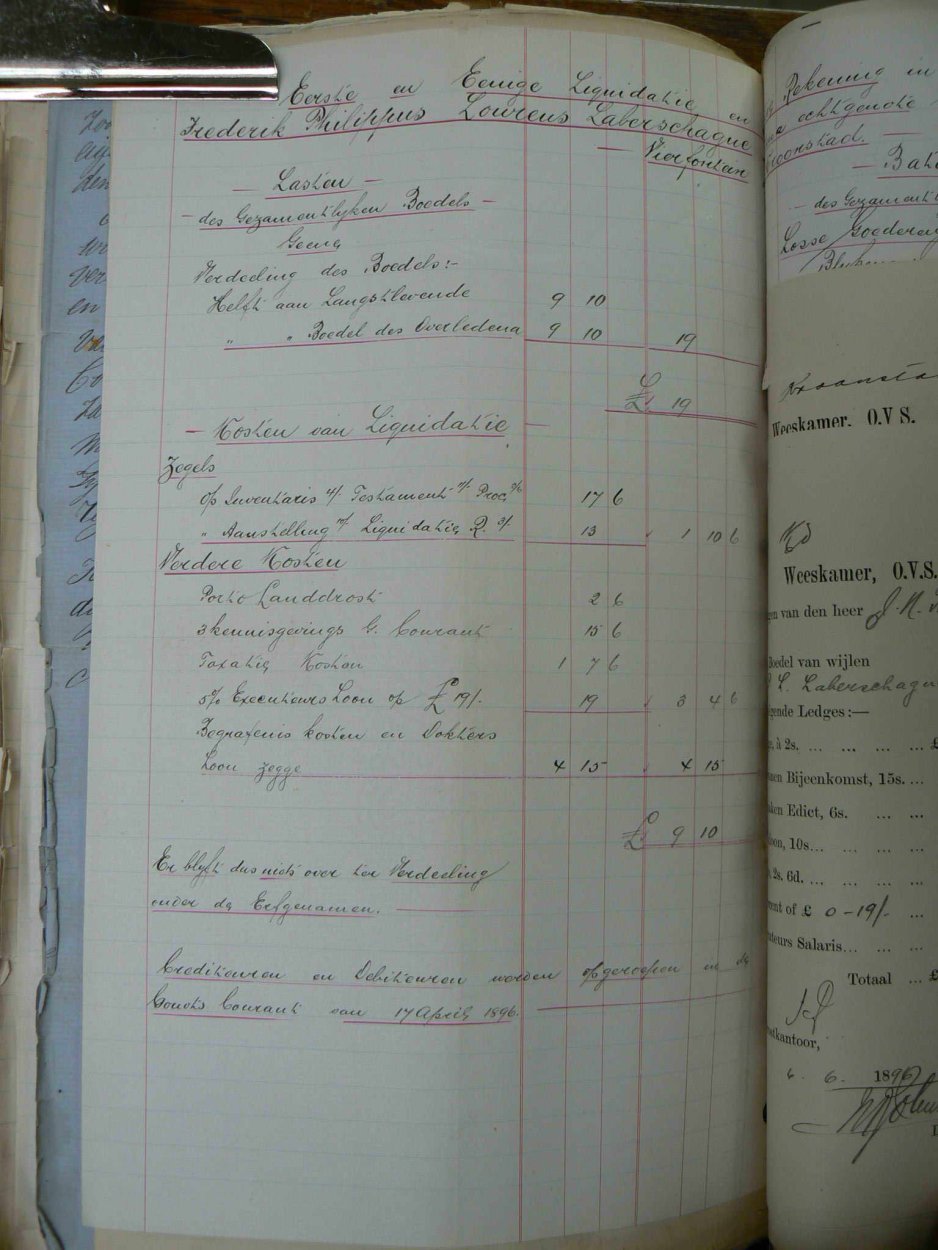 Eerste en Eenige Liquidatie en
Frederik Philippus Lourens Laberschagne
— Vierfontein
— Lasten —
— des Gezamentlyken Boedels —
Geene
Verdeeling des Boedels:-
Helft aan Langstlevende 9 10
" " Boedel des Overledene 9 10 19
£ 19
— Kosten van Liquidatie —
Zegels
op Inventaris 4/- Testament Proc. 17 6
" Aanstelling Liquidatie R. 13 1 10 6
Verdere Kosten
Porto Landdrost 2 6
3 kennisgevings G. Courant 15 6
Taxatie Kosten 1 7 6
5% Executeurs Loon op £ 19/- 19 3 4 6
Begrafenis kosten en Dokters
Loon zegge 4 15 4 15
£ 9 10
Er blyft dus niets over ter Verdeeling
onder de Erfgenamen. —
Crediteuren en Debiteuren worden opgeroepen in de
Gouvts Courant van 17 April 1896.
Rekening in
echtgenote
Kroonstad. —
— Bate
— des Gezament
Losse Goederen
Weeskamer. O.V S.
Weeskamer, O.V.S.
gen van den heer J. N.
Boedel van wijlen
L. Laberschagn
gende Ledges:—
e, à 2s. ... ... ... ... £
nen Bijeenkomst, 15s. ...
ken Edict, 6s. ... ...
oon, 10s... ... ... ...
, 2s. 6d. ... ... ... ...
cent of £ 0 - 19/- ...
uteurs Salaris... ... ...
Totaal ... £
stkantoor,
6. 6. 1896